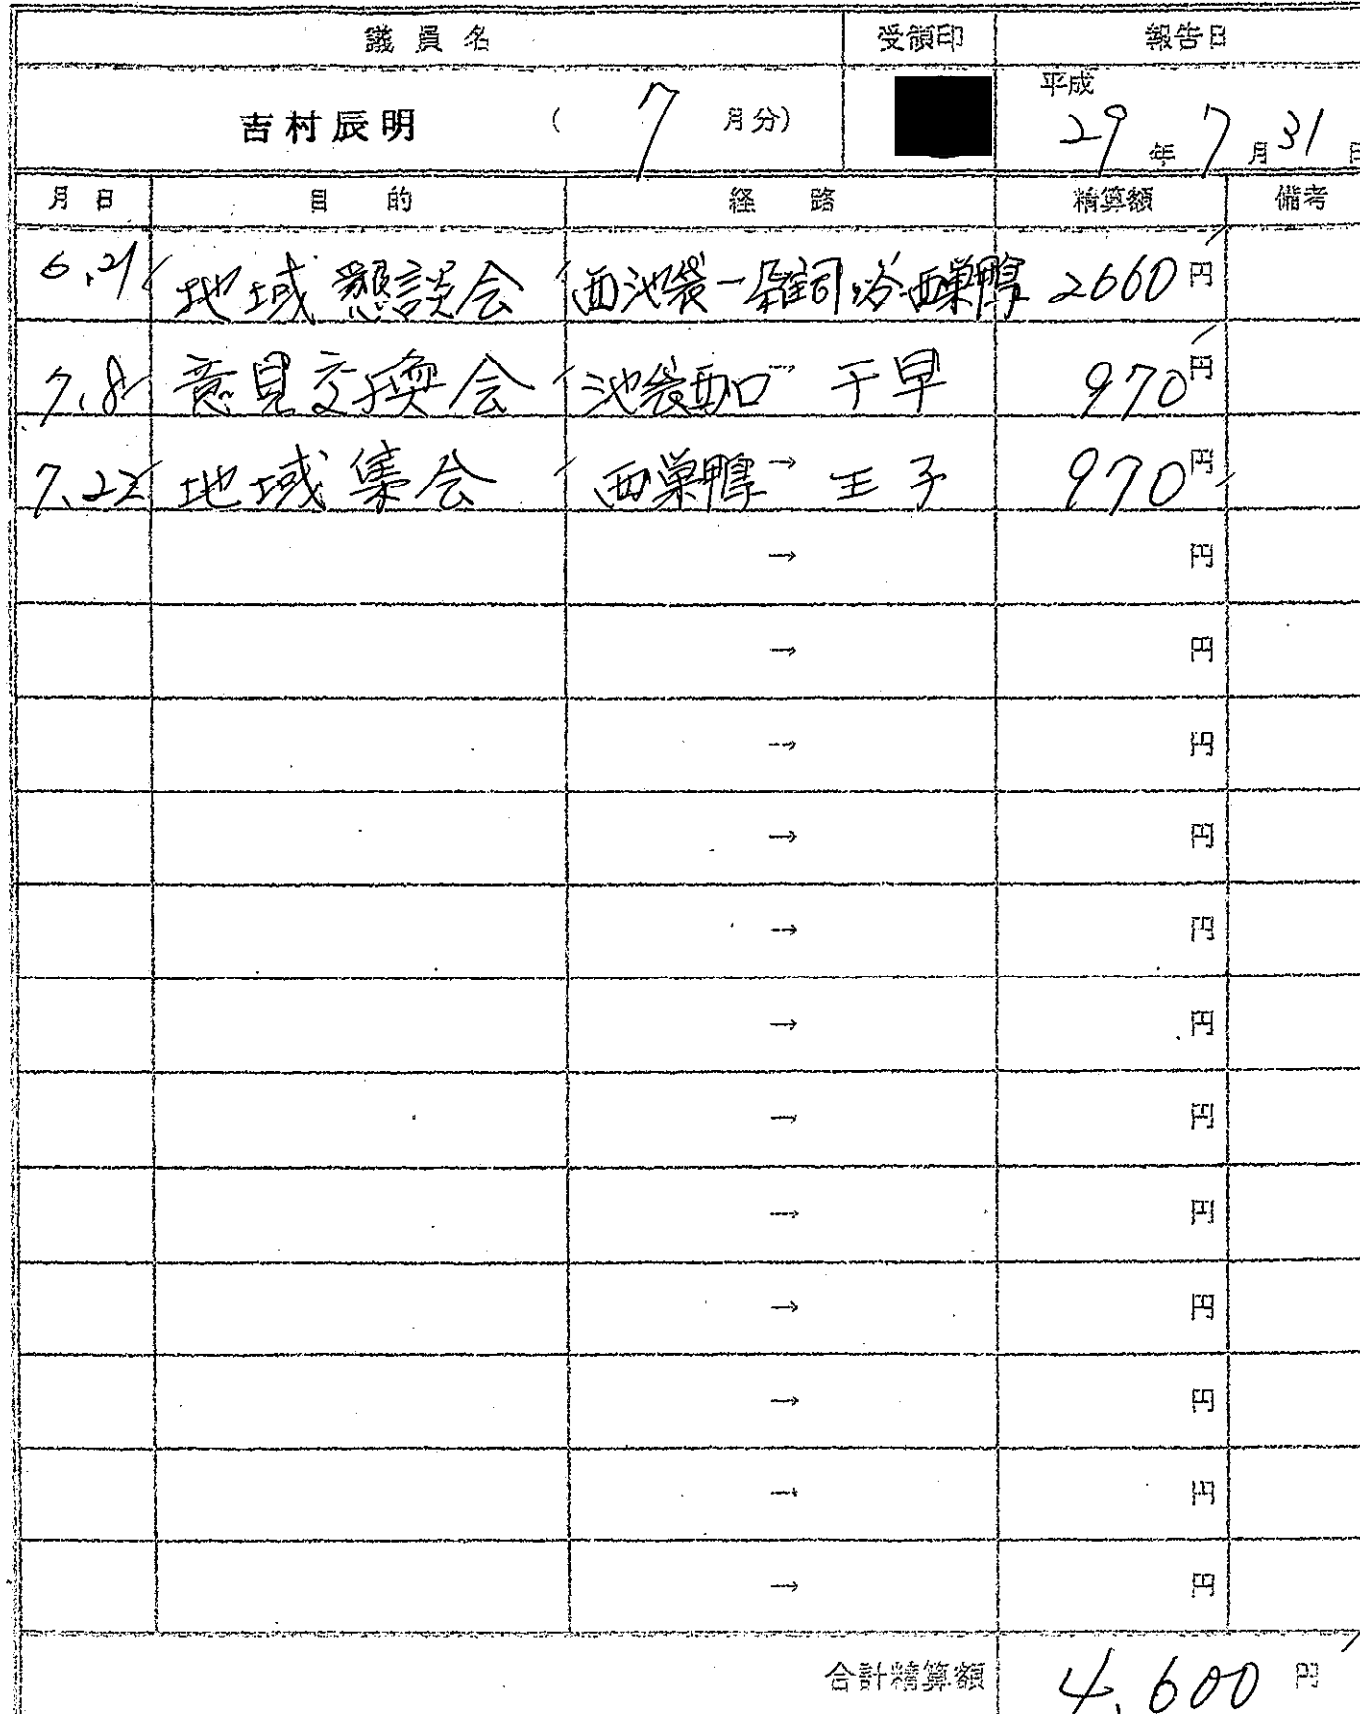 議員名 受領印 報告日
吉村辰明 ( 7 月分) 平成 29 年 7 月 31 日
月日 目的 経路 精算額 備考
6.21 地域懇談会 西池袋ー雑司ヶ谷西巣鴨 2660円
7.8 意見交換会 池袋西口 → 千早 970円
7.22 地域集会 西巣鴨 → 王子 970円
→ 円
→ 円
→ 円
→ 円
→ 円
→ 円
→ 円
→ 円
→ 円
→ 円
→ 円
→ 円
合計精算額 4,600 円